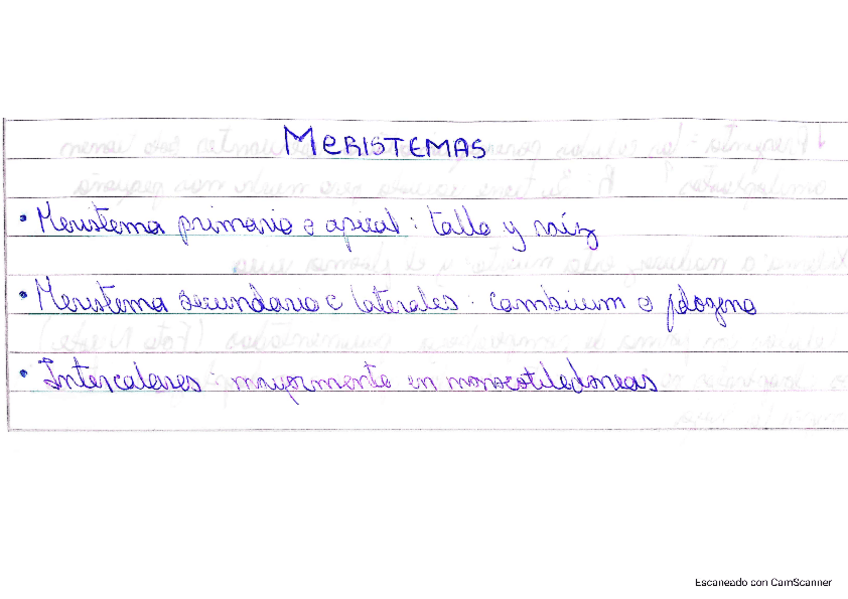 MERISTEMAS
• Meristema primario o apical: tallo y raíz
• Meristema secundario o laterales: cambium o
• Intercalares: mayormente en monocotiledoneas
Escaneado con CamScanner